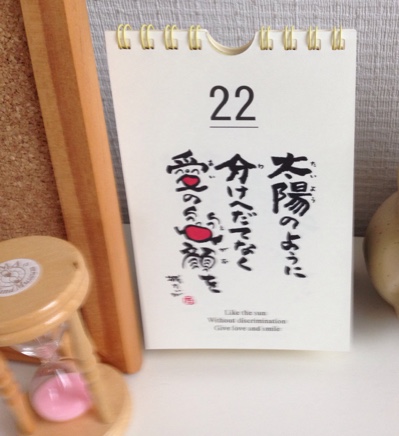 22
太陽のように
分けへだてなく
愛の笑顔を
Like the sun
Without discrimination
Give love and smile